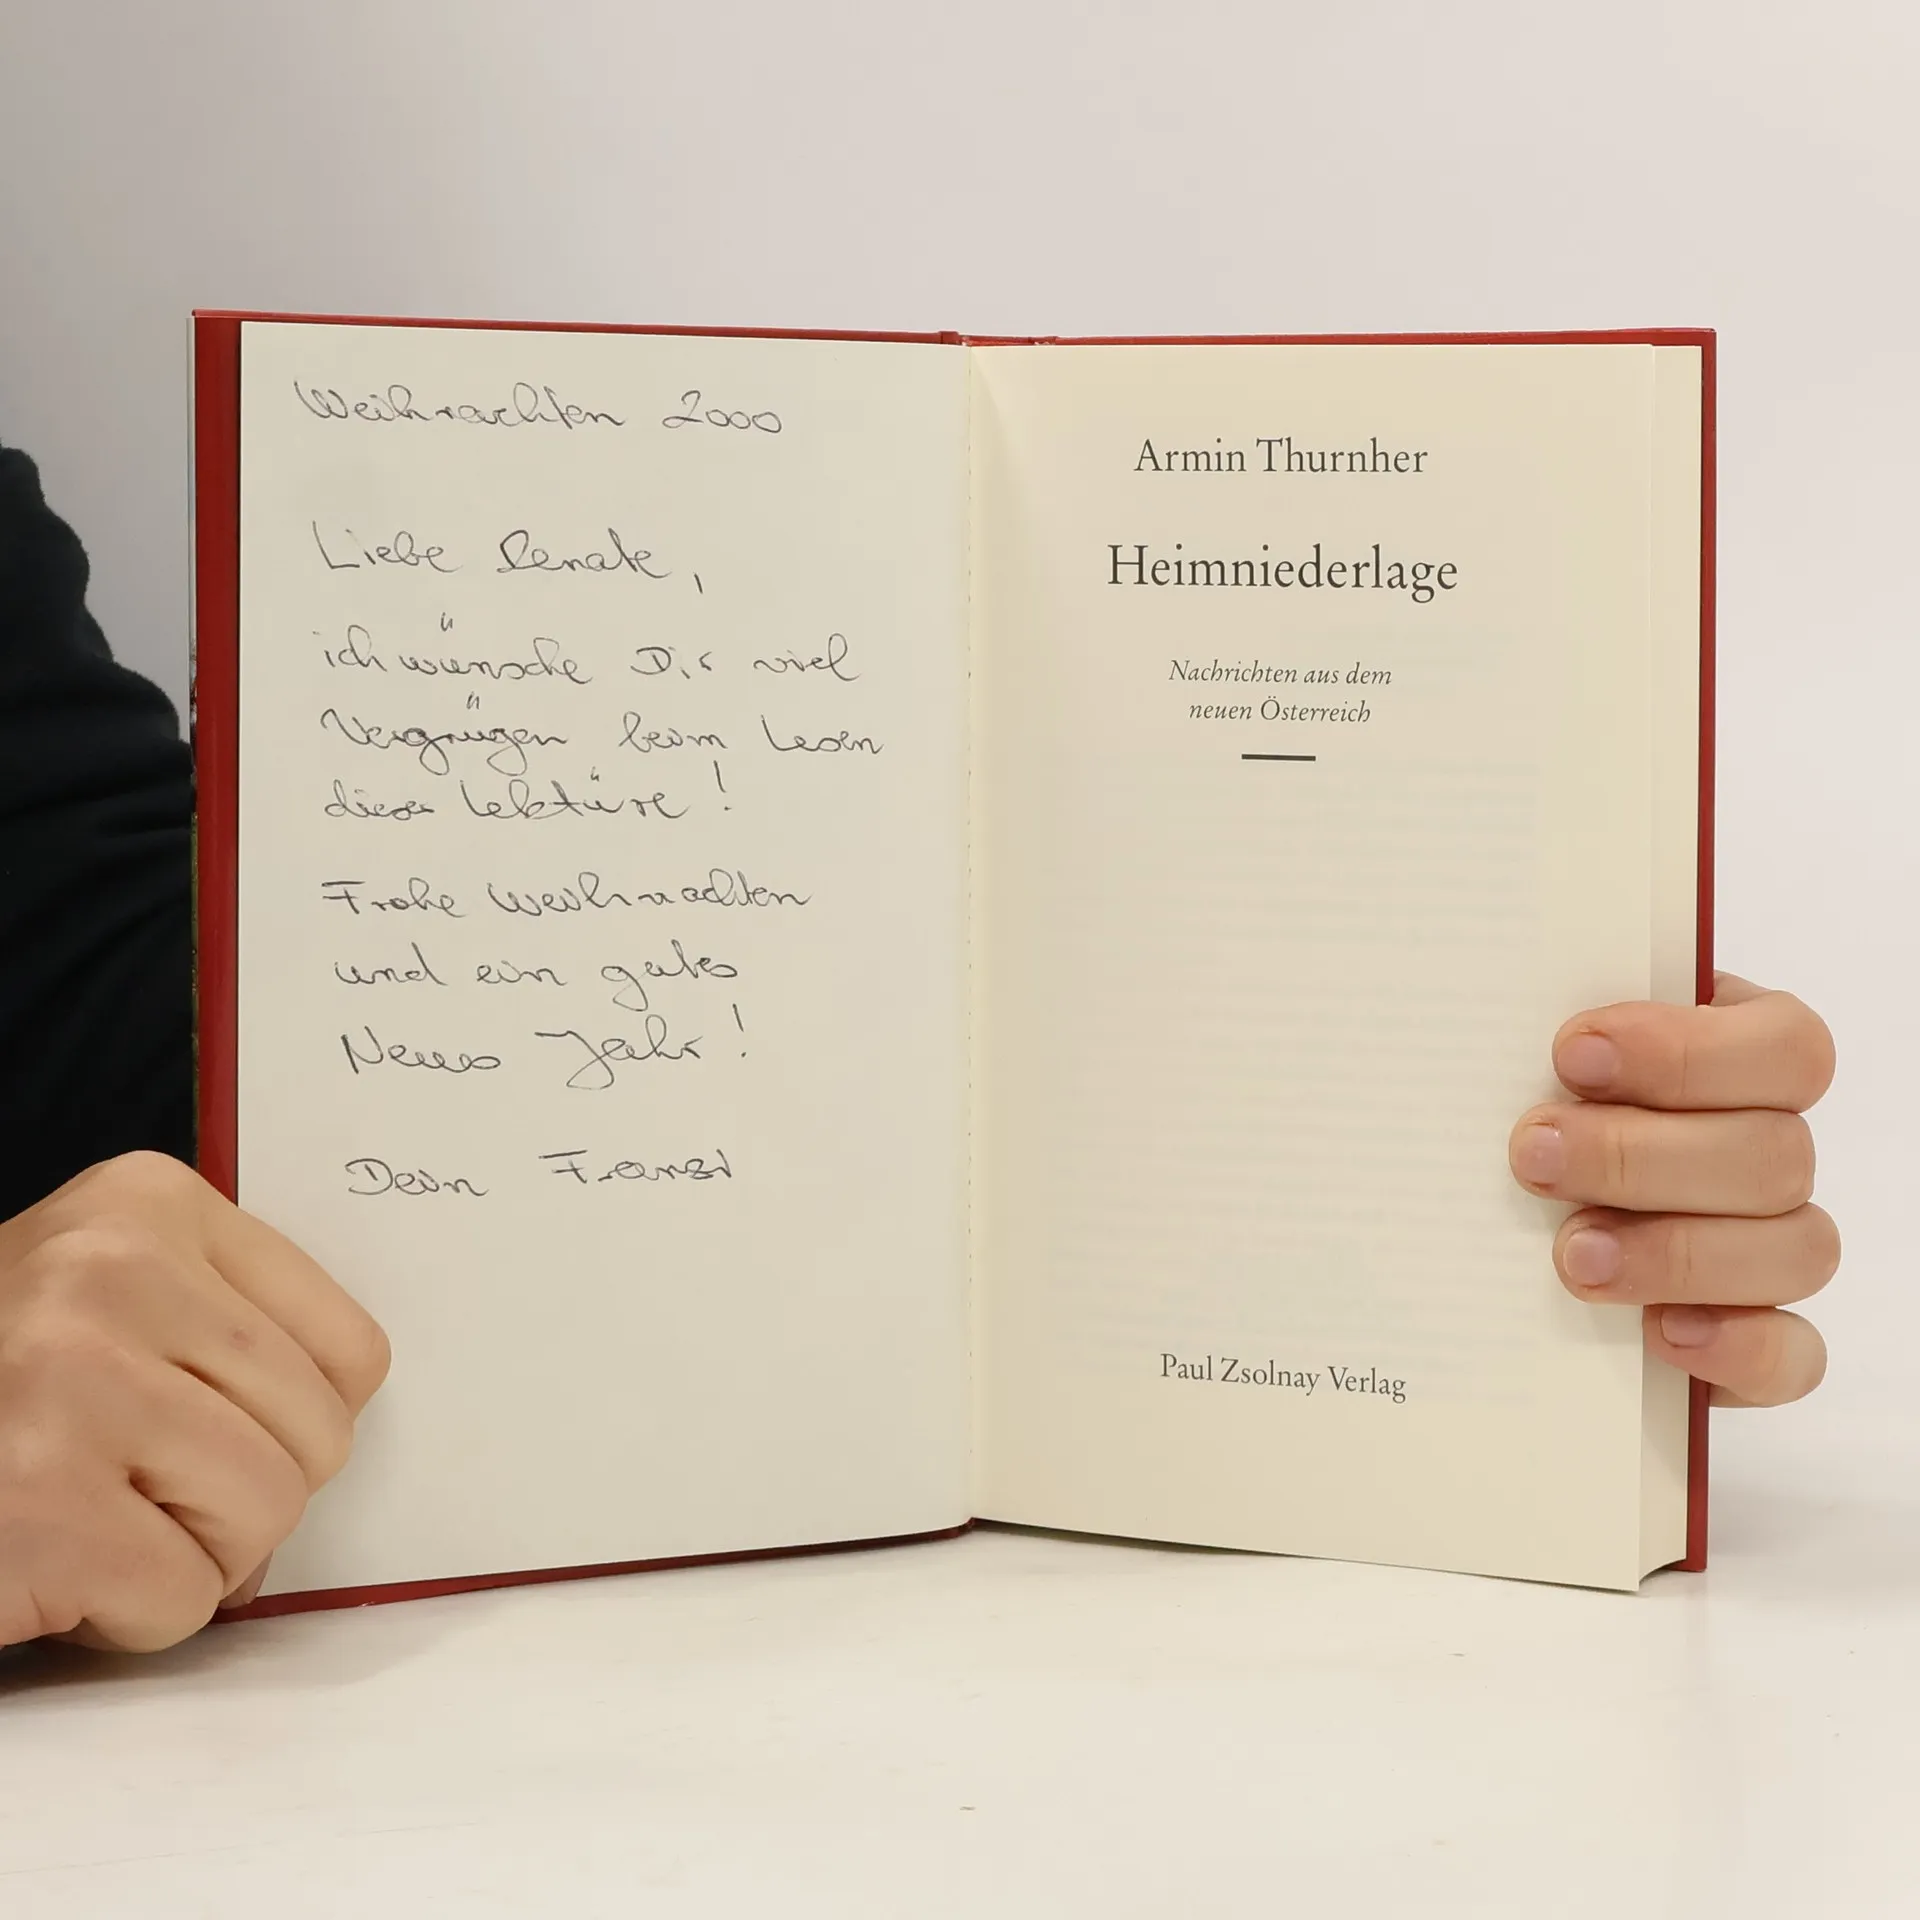 Weihnachten 2000
Liebe Renate,
ich wünsche Dir viel
Vergnügen beim Lesen
dieser Lektüre!
Frohe Weihnachten
und ein gutes
Neues Jahr!
Dein Franzi
Armin Thurnher
Heimniederlage
Nachrichten aus dem
neuen Österreich
Paul Zsolnay Verlag